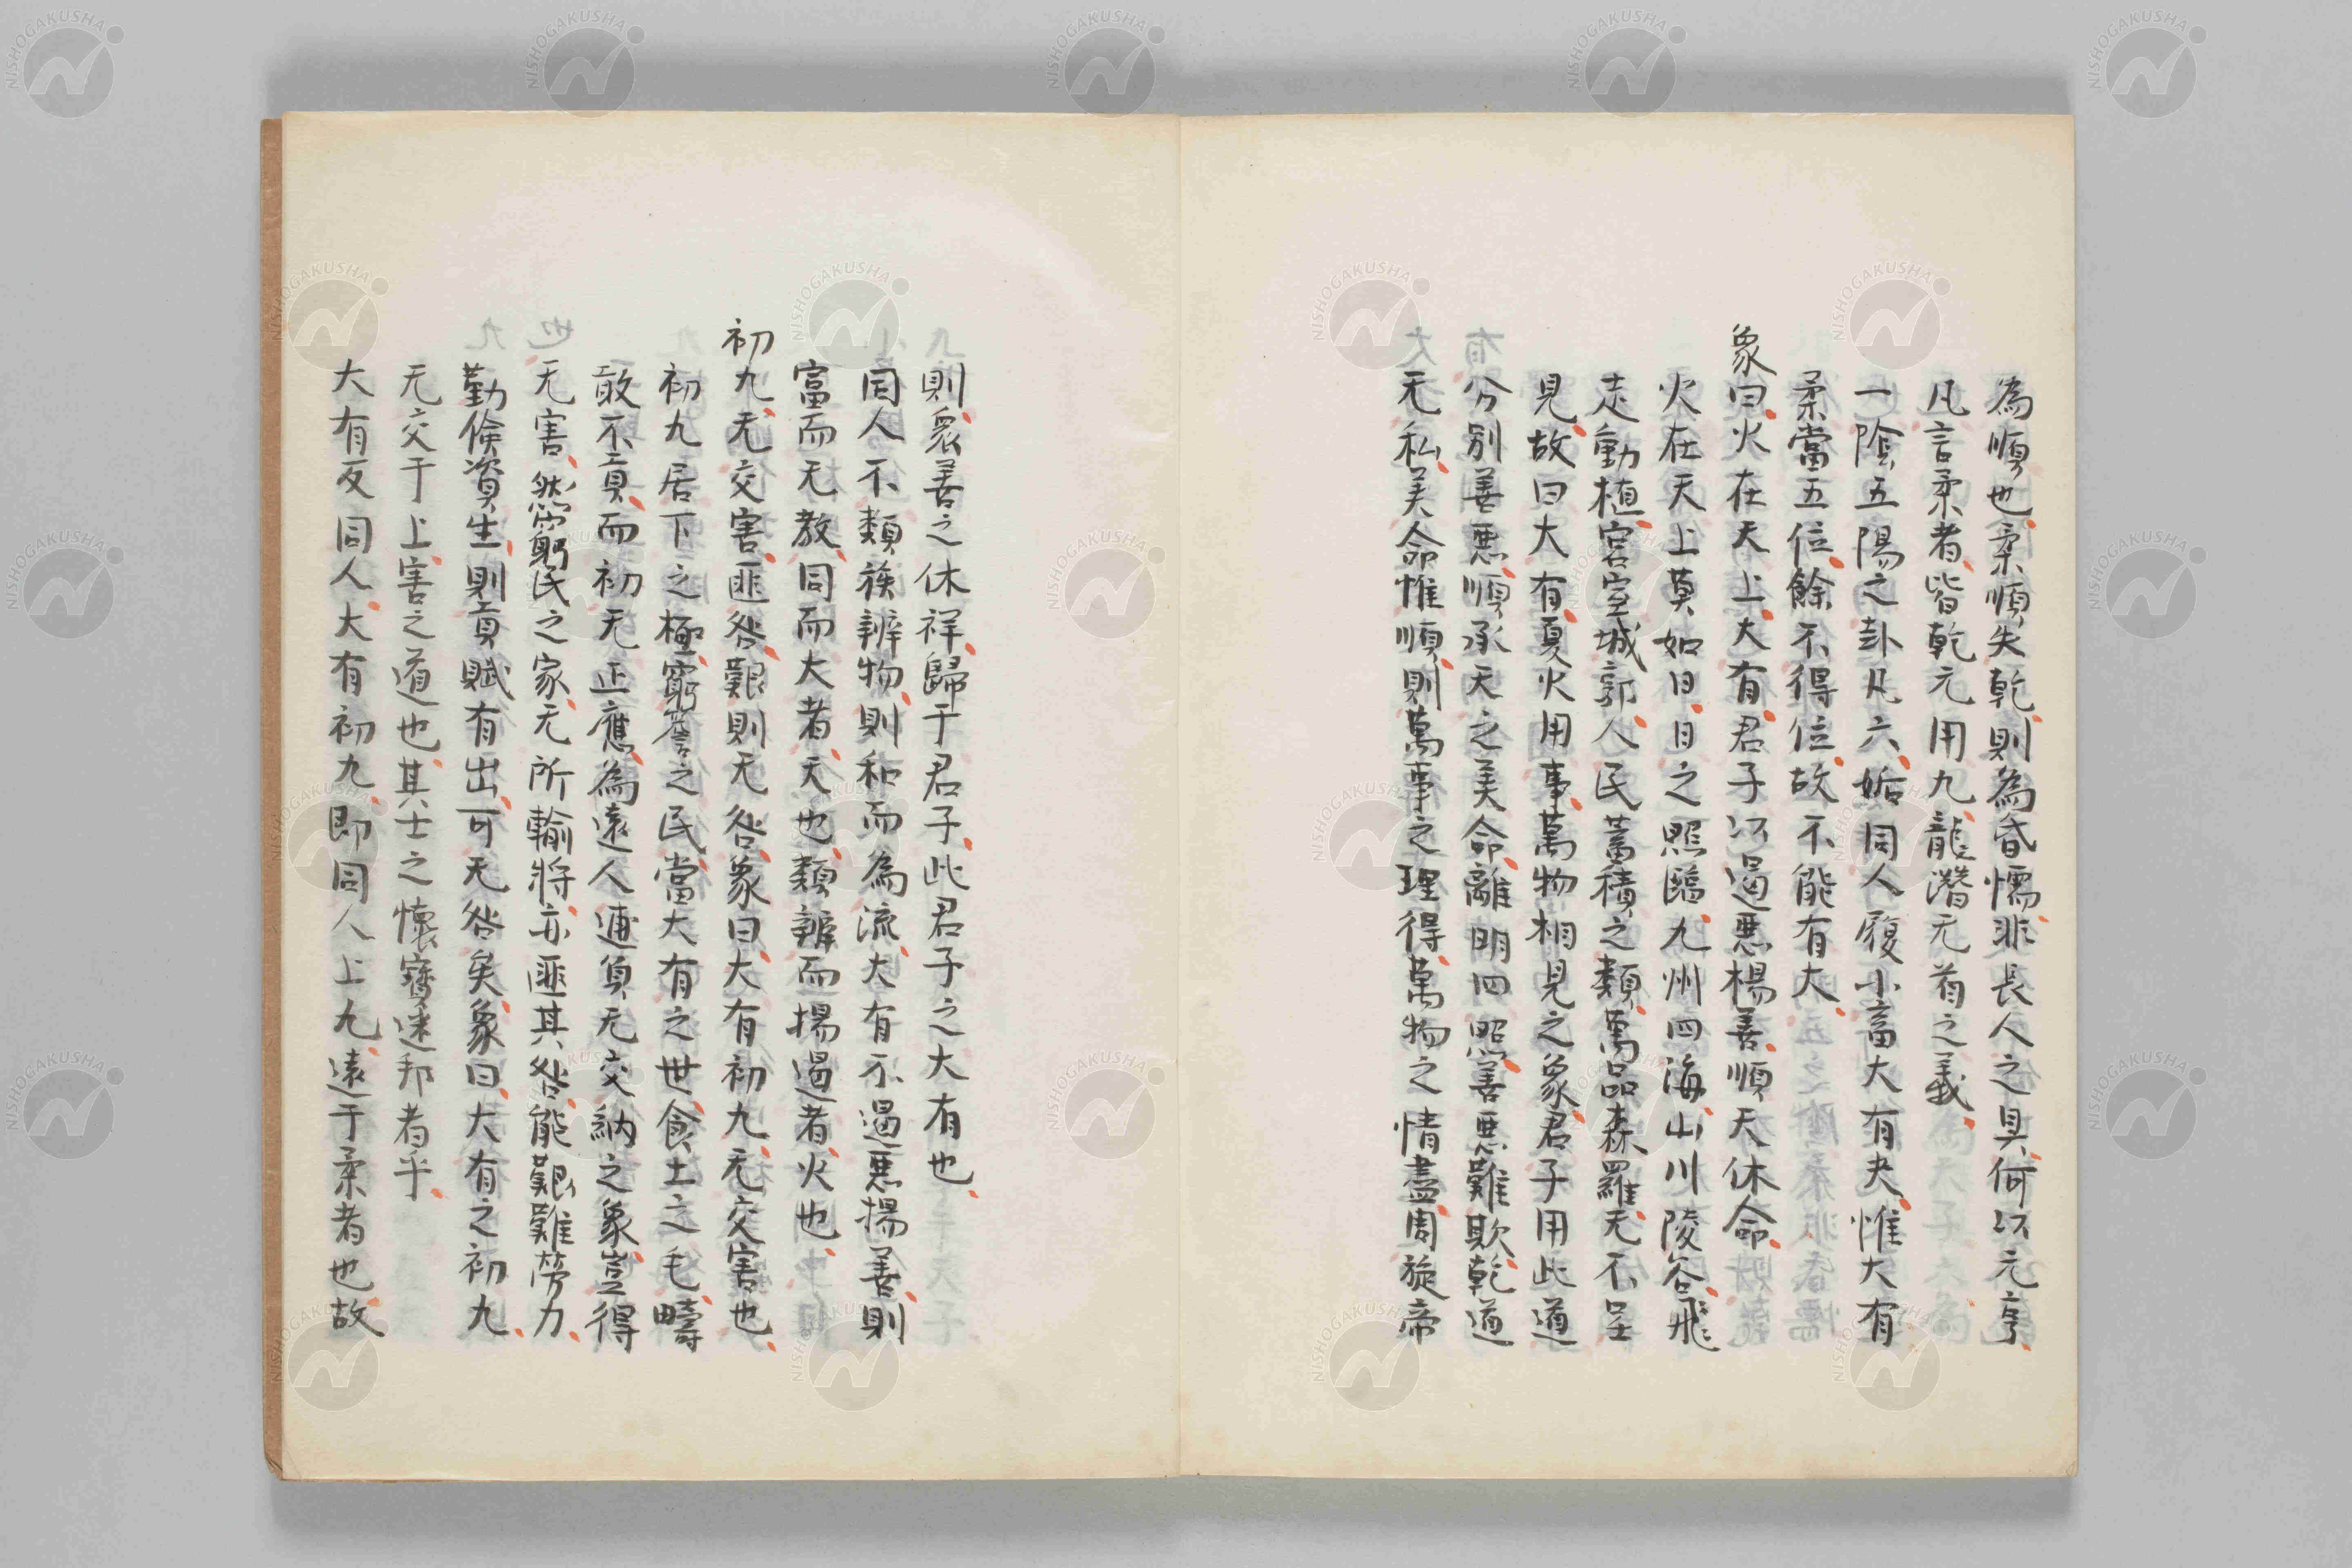 為順也柔順失乾則為昏懦非長人之具何以元亨
凡言柔者皆乾元用九龍潛无首之義
一陰五陽之卦凡六姤同人履小畜大有夬惟大有
柔當五位餘不得位故不能有大
象曰火在天上大有君子以遏惡楊善順天休命
火在天上莫如日日之照臨九州四海山川陵谷飛
走動植宮室城郭人民蓄積之類萬品森羅无不呈
見故曰大有夏火用事萬物相見之象君子用此道
分別善惡順承天之美命離明四照善惡難欺乾道
无私美命惟順則萬事之理得萬物之情盡周旋帝
則衆善之休祥歸于君子此君子之大有也
同人不類族辨物則和而為流大有不遏惡揚善則
富而无教同而大者天也類辨而揚遏者火也
初九无交害匪咎艱則无咎象曰大有初九无交害也
初九居下之極窮簷之民當大有之世食土之毛疇
敢不貢而初无正應為遠人逋負无交納之象豈得
无害然窮民之家无所輸將亦匪其咎能艱難勞力
勤儉資生則貢賦有出可无咎矣象曰大有之初九
无交于上害之道也其士之懷寶迷邦者乎
大有反同人大有初九即同人上九遠于柔者也故
NISHOGAKUSHA